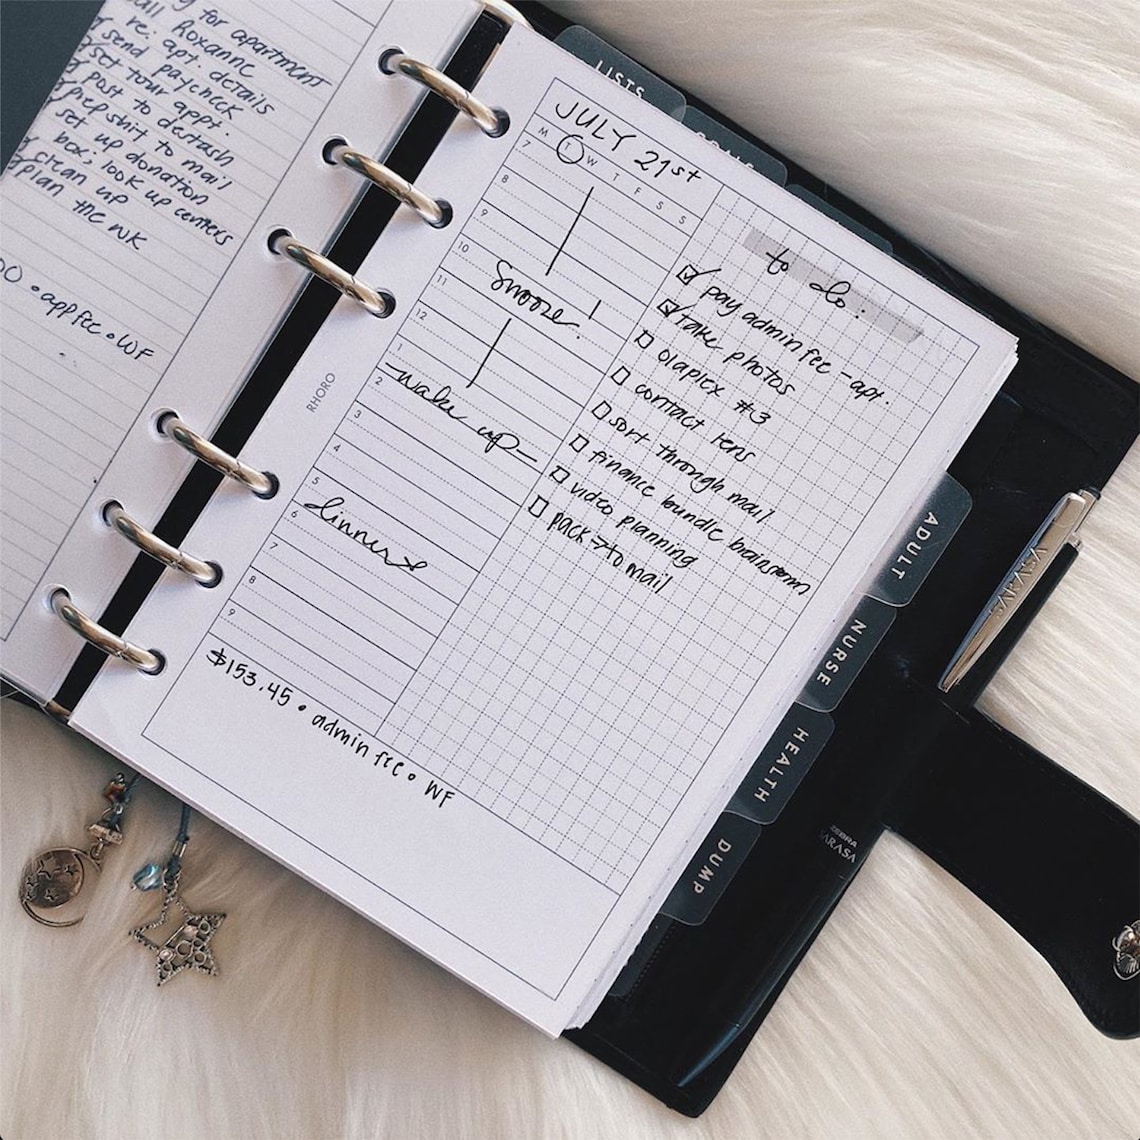 for apartment
call Roxanne
re: apt. details
send paycheck
set tour appt.
post to destash
prep shit to mail
set up donation
box; look up centers
clean up
plan the wk
• app fee • WF
RHORO
JULY 21st
M T W T F S S
7
8
9
10
Snooze!
11
12
1
2
-wake up-
3
4
5
6
dinner
7
8
9
$153.45 • admin fee • WF
to do:
pay admin fee - apt.
take photos
olaplex #3
contact lens
sort through mail
finance bundle brainstorm
video planning
pack → to mail
LISTS
ADULT
NURSE
HEALTH
DUMP
SARASA
ZEBRA
SARASA